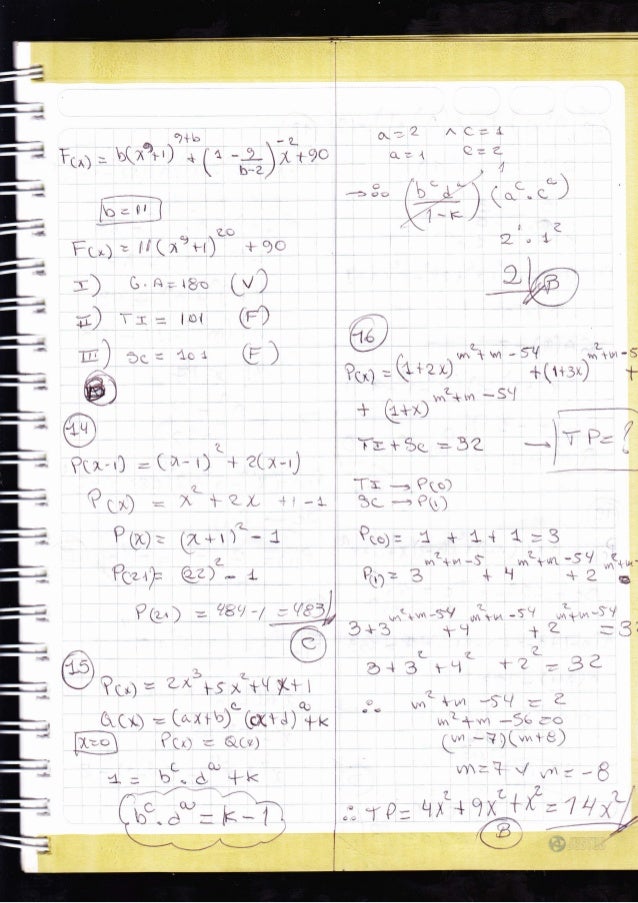 F(x) = b(x⁹+1)^(9+b) + (1 - 9/(b-2)) x^(-2) + 90
b = 11
F(x) = 11(x⁹+1)^20 + 90
I) G.A = 180 (V)
II) TI = 101 (F)
III) Sc = 101 (F)
B
14
P(x-1) = (x-1)² + 2(x-1)
P(x) = x² + 2x +1 -1
P(x) = (x+1)² - 1
P(21) = (22)² - 1
P(21) = 484 - 1 = 483
C
15
P(x) = 2x³ + 5x² + 4x + 1
Q(x) = (ax+b)^c (cx+d)^a + k
x=0 P(x) = Q(x)
1 = b^c . d^a + k
b^c . d^a = k - 1
a = 2 ∧ c = 1
a = 1 c = 2
→ ∴ (b^c d^a / 1-k) (a^c . c^a)
1
2¹ . 1²
2 B
16
P(x) = (1+2x)^(m²+m-54) + (1+3x)^(m²+m-5
+
+ (1+x)^(m²+m-54)
TI + Sc = 32 → TP = ?
TI → P(0)
Sc → P(1)
P(0) = 1 + 1 + 1 = 3
P(1) = 3^(m²+m-5) + 4^(m²+m-54) + 2^(m²+m-
3 + 3^(m²+m-54) + 4^(m²+m-54) + 2^(m²+m-54) = 32
3 + 3² + 4² + 2² = 32
∴ m² + m - 54 = 2
m² + m - 56 = 0
(m - 7)(m + 8)
m = 7 ∨ m = -8
∴ TP = 4x² + 9x² + x² = 14x²
B